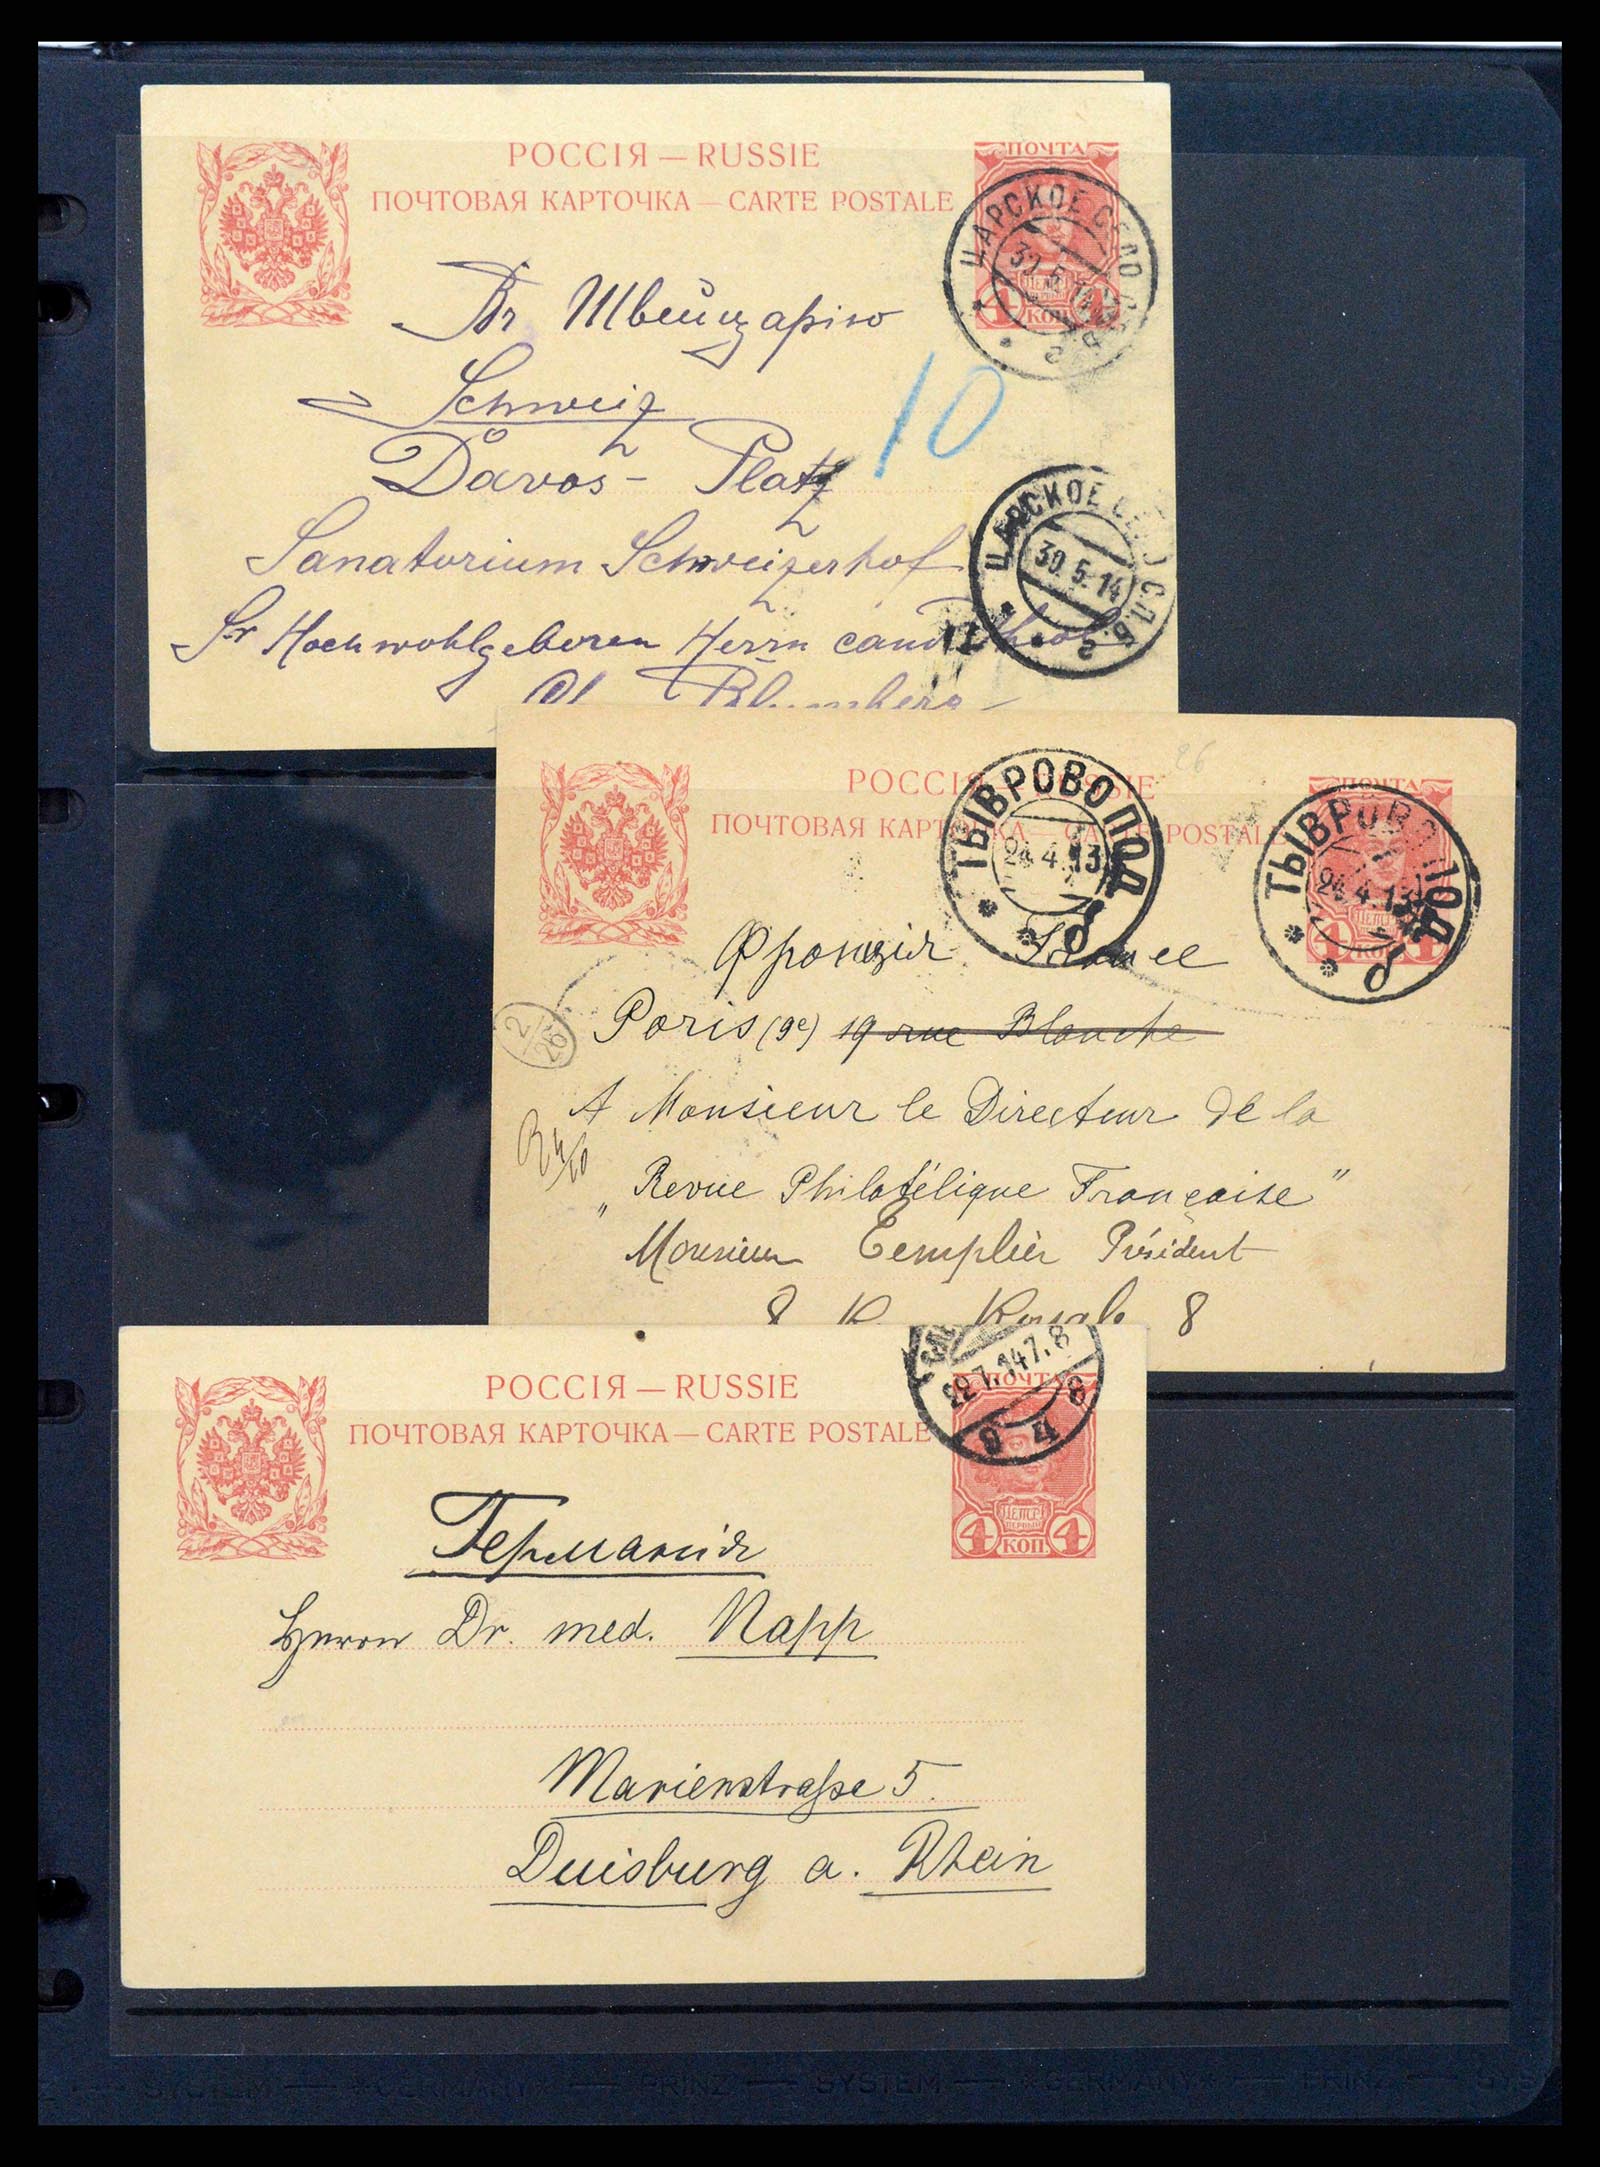 РОССІЯ — RUSSIE
ПОЧТОВАЯ КАРТОЧКА — CARTE POSTALE
ПОЧТА
ЦАРСКОЕ СЕЛО
30.5.14
4 КОП.
Въ Швейцарію
Schweiz
10
Davos - Platz
ЦАРСКОЕ СЕЛО С.П.Б.
30.5.14
г
Sanatorium Schweizerhof
Sr Hochwohlgeboren Herrn cand
Blumberg
РОССІЯ — RUSSIE
ПОЧТОВАЯ КАРТОЧКА — CARTE POSTALE
ПОЧТА
26
ТЫВРОВО ПОД. б
24.4.13
ТЫВРОВО ПОД. б
24.4.13
4 КОП. 4
Франція France
Paris (9e) 19 rue Blanche
2/26
A Monsieur le Directeur de la
„Revue Philatélique Française"
Monsieur Templier Président
8 8
РОССІЯ — RUSSIE
ПОЧТОВАЯ КАРТОЧКА — CARTE POSTALE
22.7.14 7.8
ПОЧТА
ПЕТРЪ ПЕРВЫЙ
4 КОП. 4
Германія
Herrn Dr. med. Napp
Marienstraße 5.
Duisburg a. Rhein
SYSTEM — *GERMANY* — PRINZ — SYSTEM — *GERMANY* — PRINZ — SYS